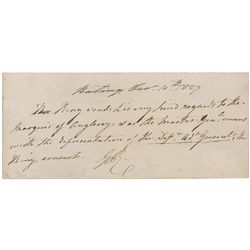 The King sends his very kind regards to the
Marquis of Anglesey, & as the Master Genl. concurs
with the representation of the Depy. Adjt. General, the
King consents. GR.